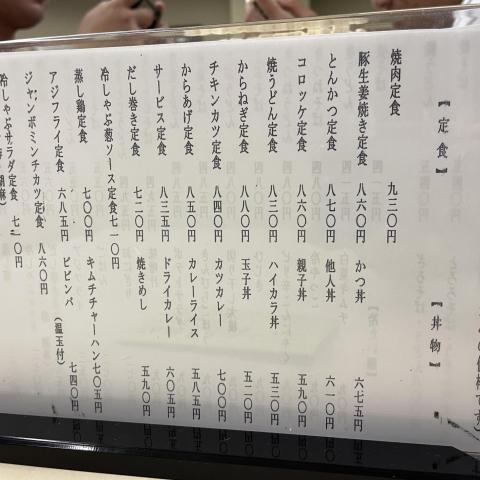 の価格です)
『定食』 『丼物』
焼肉定食 九三〇円
豚生姜焼き定食 八六〇円 かつ丼 六七五円
とんかつ定食 八七〇円 他人丼 六一〇円
コロッケ定食 八六〇円 親子丼 五九〇円
焼うどん定食 八三〇円 ハイカラ丼 五三〇円
からねぎ定食 八八〇円 玉子丼 五二〇円
チキンカツ定食 八四〇円 カツカレー 七〇〇円
からあげ定食 八五〇円 カレーライス 五八五円
サービス定食 八三五円 ドライカレー 六〇五円
だし巻き定食 七二〇円 焼きめし 五九〇円
冷しゃぶ葱ソース定食七一〇円
蒸し鶏定食 七〇〇円 キムチチャーハン七〇五円
アジフライ定食 六八五円 ビビンバ 七四〇円
(温玉付)
ジャンボミンチカツ定食 八六〇円
冷しゃぶサラダ定食 七一〇円
胡麻)